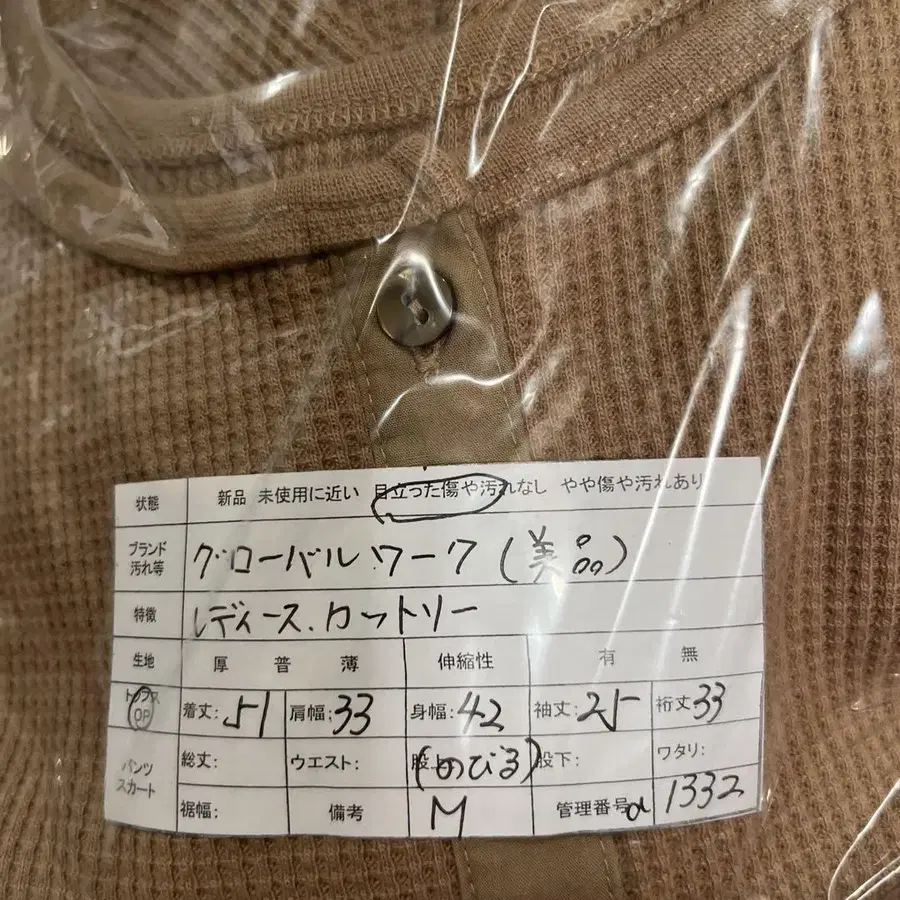 状態 新品 未使用に近い 目立った傷や汚れなし やや傷や汚れあり
ブランド 汚れ等 グローバルワーク(美品)
特徴 レディース.カットソー
生地 厚 普 薄 伸縮性 有 無
トップス OP 着丈:51 肩幅:33 身幅:42 袖丈:25 裄丈33
パンツ スカート 総丈: ウエスト: (のびる) 股下: ワタリ:
裾幅: 備考 M 管理番号α 1332